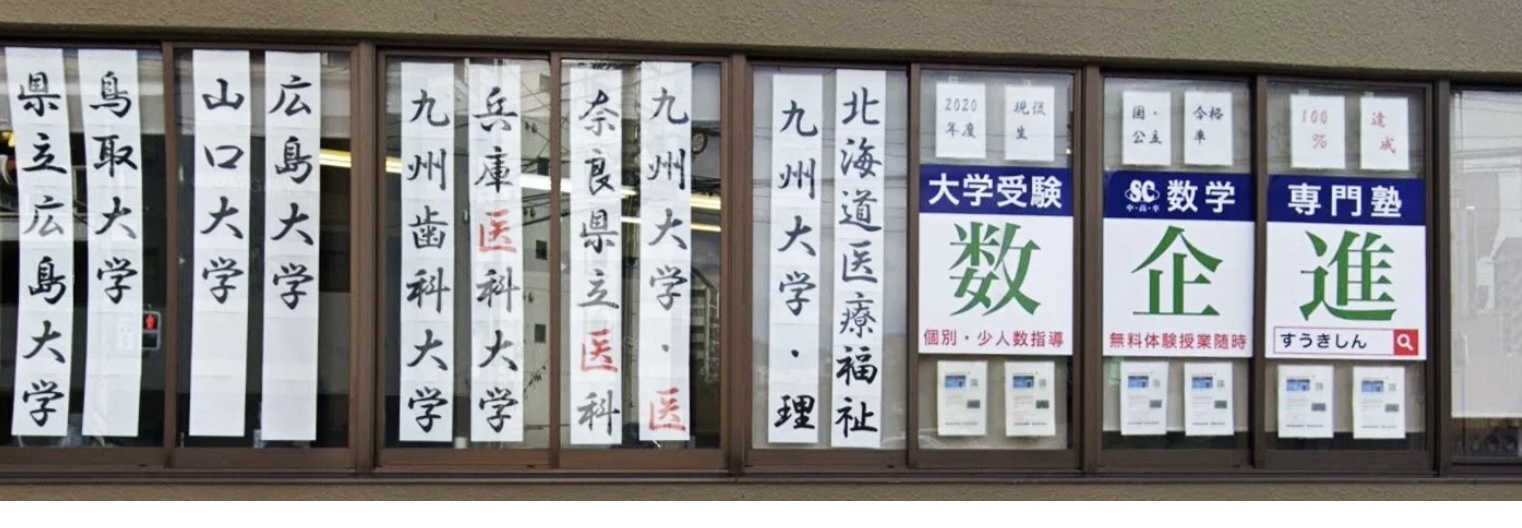 県立広島大学
鳥取大学
山口大学
広島大学
九州歯科大学
兵庫医科大学
奈良県立医科
九州大学・医
九州大学・理
北海道医療福祉
2020年度
現役生
国・公立
合格率
100%
達成
大学受験
SC 数学
中・高・卒
専門塾
数企進
個別・少人数指導
無料体験授業随時
すうきしん